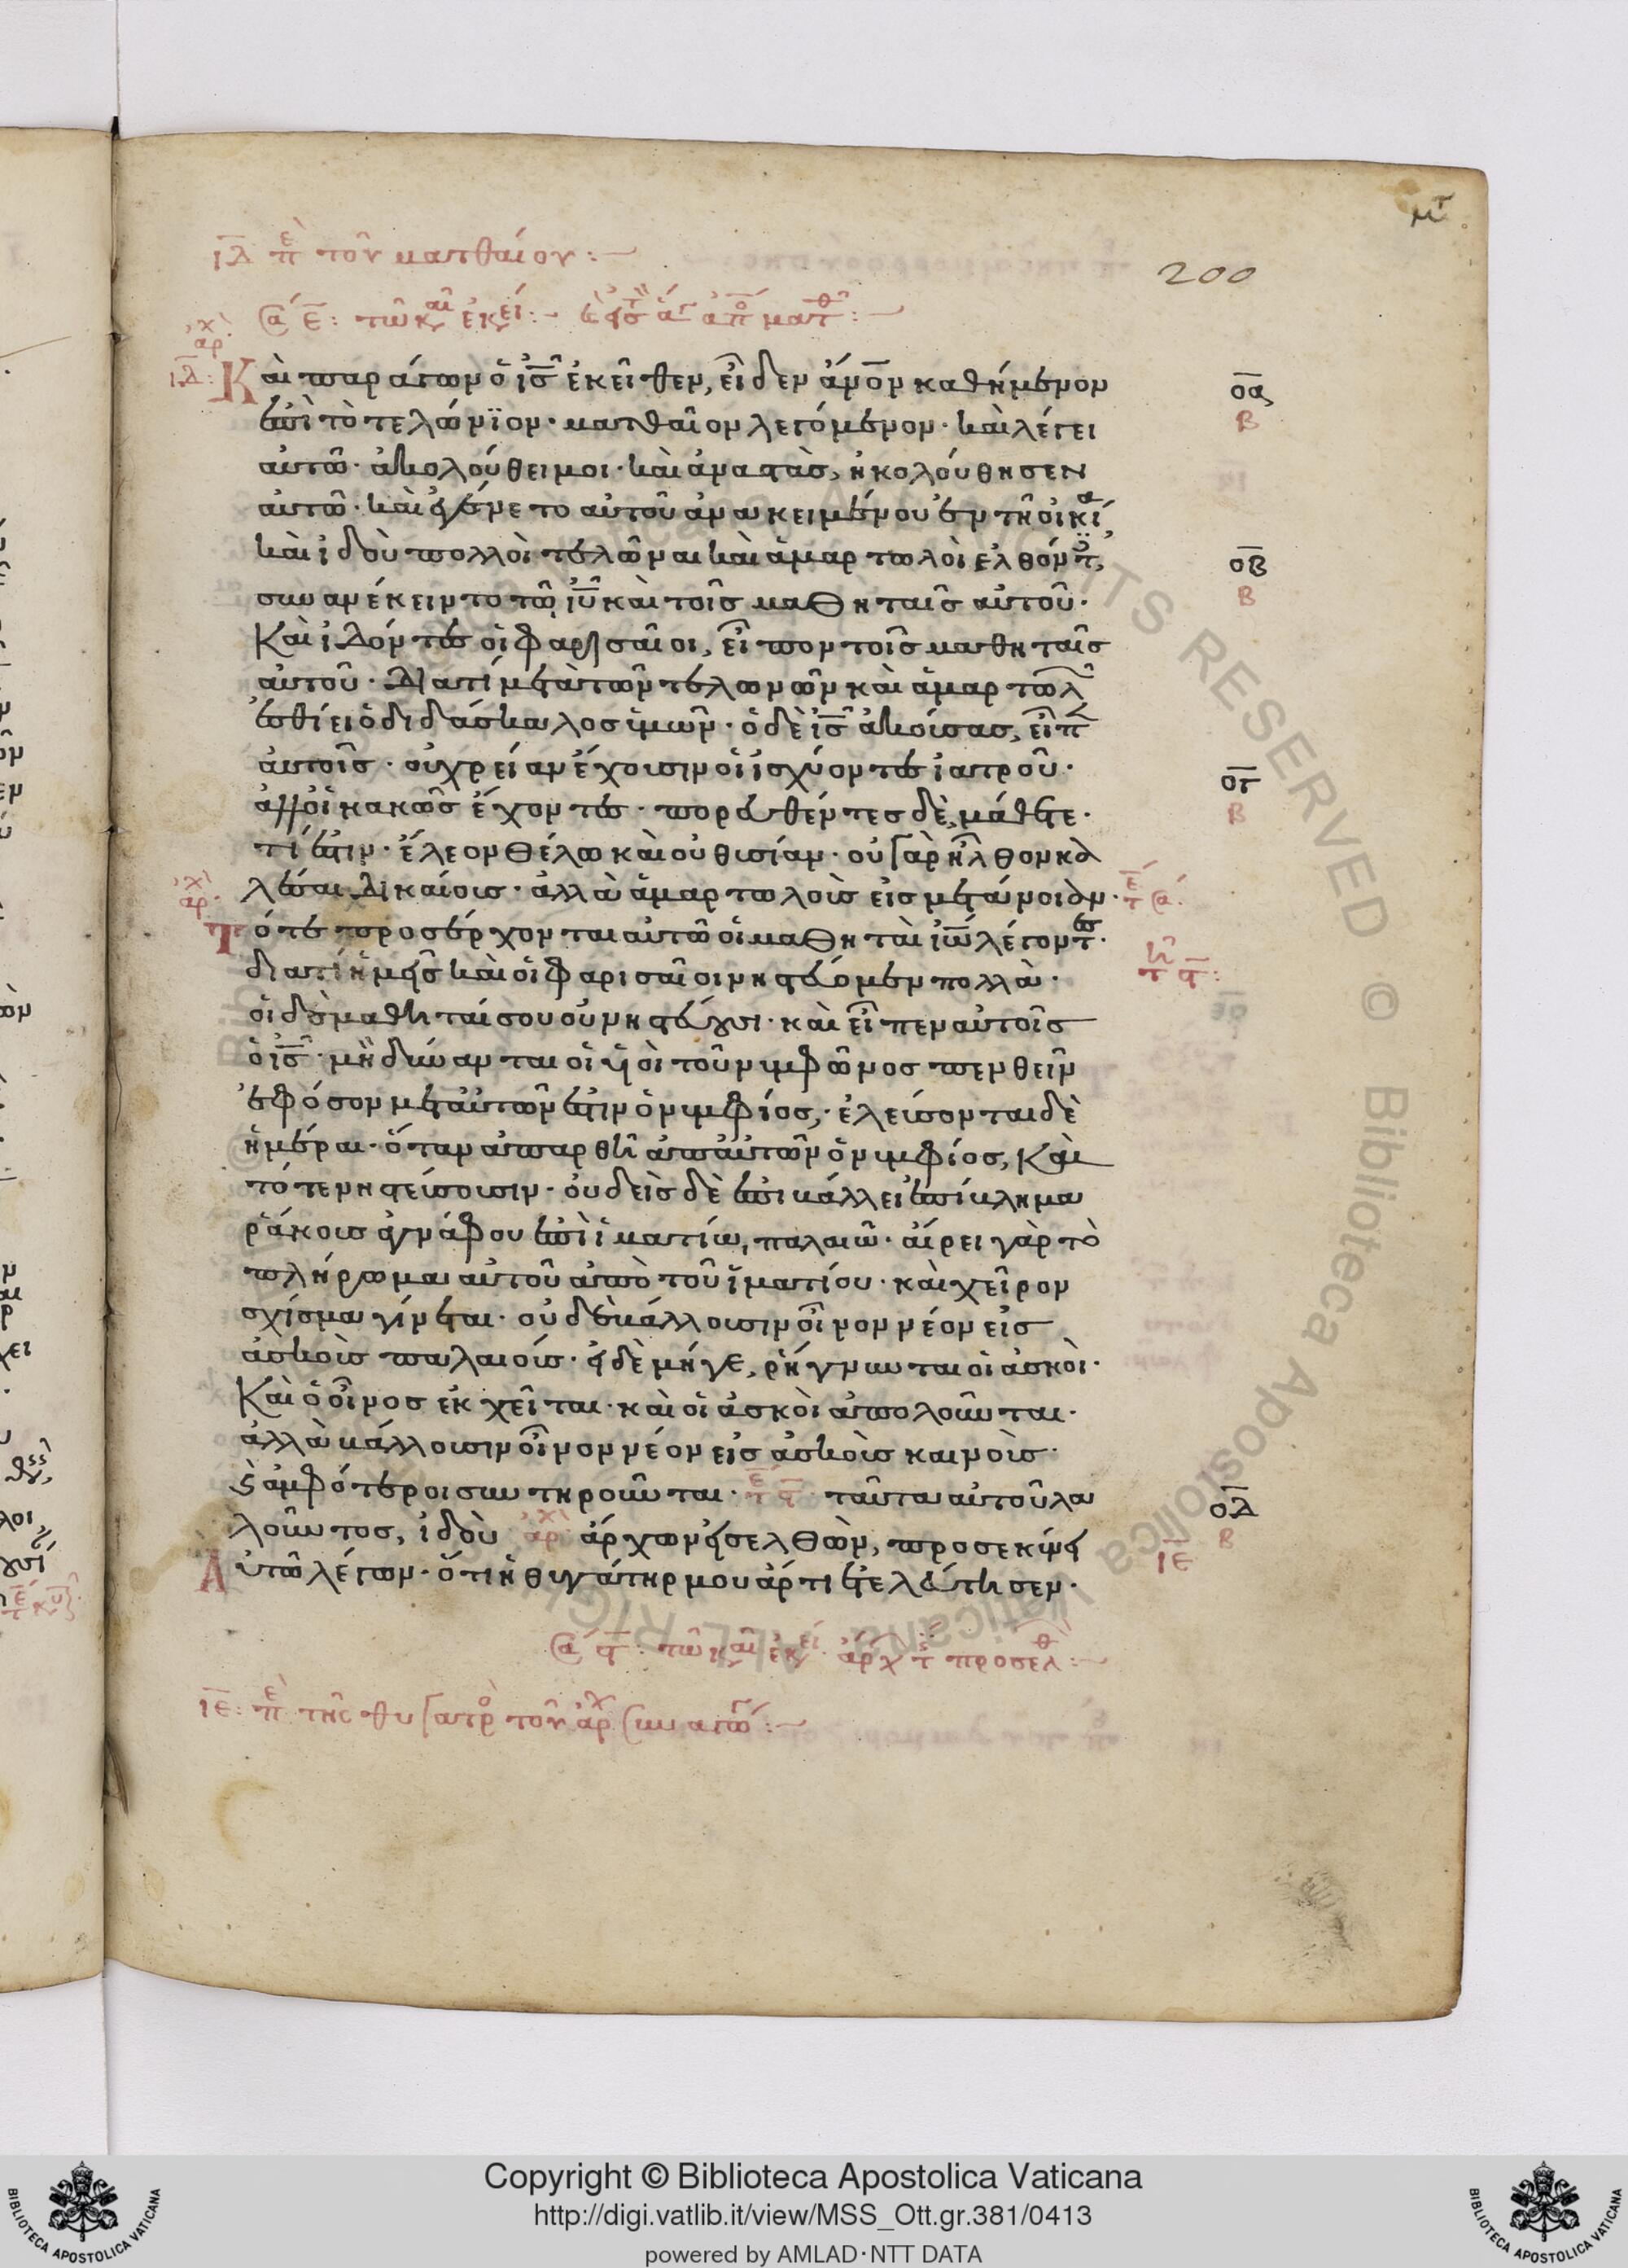 μγ
200
ιδ πε τοῦ ματθαίου:
Καὶ παράγων ὁ ἰς ἐκεῖθεν, εἶδεν ἄνον καθήμενον
ἐπὶ τὸ τελώνϊον· ματθαῖον λεγόμενον· καὶ λέγει
αὐτῶ· ἀκολούθει μοι· καὶ ἀναστὰς, ἠκολούθησεν
αὐτῶ· καὶ ἐγένετο αὐτοῦ ἀνακειμένου ἐν τῆ οἰκία
καὶ ἰδοὺ πολλοὶ τελῶναι καὶ ἁμαρτωλοὶ ἐλθόντ,
συνανέκειντο τῶ ἰυ καὶ τοῖς μαθηταῖς αὐτοῦ·
Καὶ ἰδόντες οἱ φαρισαῖοι, εἶπον τοῖς μαθηταῖς
αὐτοῦ· Διατί μετὰ τῶν τελωνῶν καὶ ἁμαρτωλ
ἐσθίει ὁ διδάσκαλος ὑμῶν· ὁ δὲ ἰς ἀκούσας, εἶπ
αὐτοῖς· οὐ χρείαν ἔχουσιν οἱ ἰσχύοντες ἰατροῦ·
ἀλλ οἱ κακῶς ἔχοντες· πορευθέντες δὲ, μάθετε·
τί ἐστιν· ἔλεον θέλω καὶ οὐ θυσίαν· οὐ γὰρ ἦλθον κα
λέσαι Δικαίους· ἀλλὰ ἁμαρτωλοὺς εἰς μετάνοιαν·
Τότε προσέρχονται αὐτῶ οἱ μαθηταὶ ἰω λέγοντες·
διατί ἡμεῖς καὶ οἱ φαρισαῖοι νηστεύομεν πολλὰ·
οἱ δὲ μαθηταί σου οὐ νηστεύουσι· καὶ εἶπεν αὐτοῖς
ὁ ἰς· μὴ δύνανται οἱ υἱοὶ τοῦ νυμφῶνος πενθεῖν
ἐφόσον μετ αὐτῶν ἐστιν ὁ νυμφίος,· ἐλεύσονται δὲ
ἡμέραι· ὅταν ἀπαρθῆ ἀπ αὐτῶν ὁ νυμφίος, Καὶ
τότε νηστεύσουσιν· οὐδεὶς δὲ ἐπιβάλλει ἐπίβλημα
ῥάκους ἀγνάφου ἐπὶ ἱματίω, παλαιῶ· αἴρει γὰρ τὸ
πλήρωμα αὐτοῦ ἀπὸ τοῦ ἱματίου· καὶ χεῖρον
σχίσμα γίνεται· οὐδὲ βάλλουσιν οἶνον νέον εἰς
ἀσκοὺς παλαιούς· εἰ δὲ μήγε, ῥήγνυνται οἱ ἀσκοὶ·
Καὶ ὁ οἶνος ἐκχεῖται· καὶ οἱ ἀσκοὶ ἀπολοῦνται·
ἀλλὰ βάλλουσιν οἶνον νέον εἰς ἀσκοὺς καινοὺς·
ϗ ἀμφότεροι συντηροῦνται· ταῦτα αὐτοῦ λα
λοῦντος, ἰδοὺ ἄρχων εἰσελθὼν, προσεκύνει
Αὐτῶ λέγων· ὅτι ἡ θυγάτηρ μου ἄρτι ἐτελεύτησεν·
οα
β
οβ
β
ογ
β
οδ
β
ιε
Copyright © Biblioteca Apostolica Vaticana
http://digi.vatlib.it/view/MSS_Ott.gr.381/0413
powered by AMLAD·NTT DATA
BIBLIOTECA APOSTOLICA VATICANA
BIBLIOTECA APOSTOLICA VATICANA